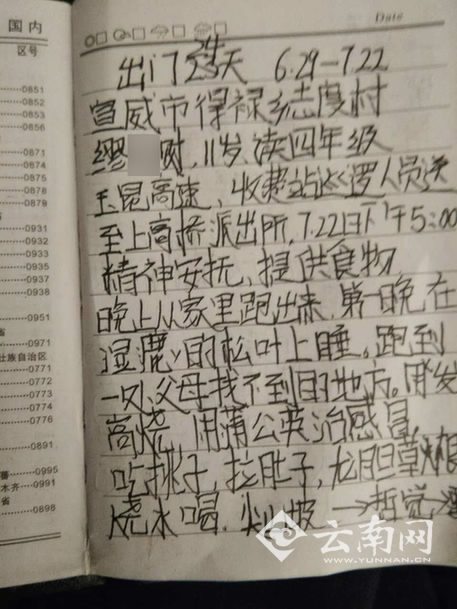 国内
区号
Date
0851
0852
0853
0856
0871
0874
0875
0878
0879
0931
0932
0933
0935
0937
0938
0951
壮族自治区
0771
0772
0773
0774
0776
0891
0995
木齐 0991
0898
出门24天 6.29-7.22
宣威市得禄乡志度村
缪 树,11岁,读四年级
玉昆高速,收费站巡逻人员送
至上高桥派出所,7.22日下午5:00
精神安抚,提供食物,
晚上从家里跑出来,第一晚在
湿鹿鹿的松叶上睡。跑到
一处父母找不到的地方。用发
高烧,用蒲公英治感冒
吃挑子,拉肚子,龙胆草
烧水喝. 一哲觉
云南网
WWW.YUNNAN.CN